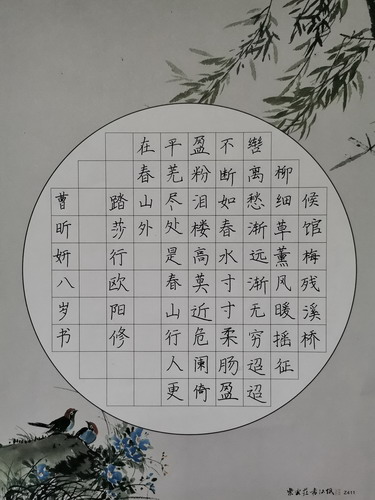 候馆梅残溪桥
柳细草薰风暖摇征
辔离愁渐远渐无穷迢迢
不断如春水寸寸柔肠盈
盈粉泪楼高莫近危阑倚
平芜尽处是春山行人更
在春山外
踏莎行欧阳修
曹昕妍八岁书